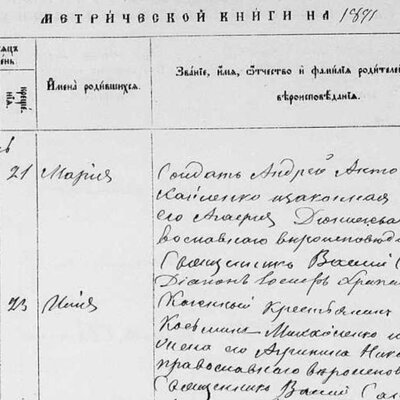 МЕТРИ́ЧЕСКОЙ КНИ́ГИ НА 1891
Имена̀ роди́вшихся.
Зва́нїе, и́мя, ѻ҆́тчество и҆ фамі́лїя родителе
вѣроисповѣ́данїя.
креще́нїя.
21 Марія
Солдатъ Андрей Анто
законная
его Агафія
вославнаго вѣроисповѣд
Священникъ Васил
Діаконъ Іосифъ
23 Илія
Казенный Крестьянинъ
Козьминъ Михайленко и
жена его Агрипина Ник
православнаго вѣроиспов
Священникъ Васил